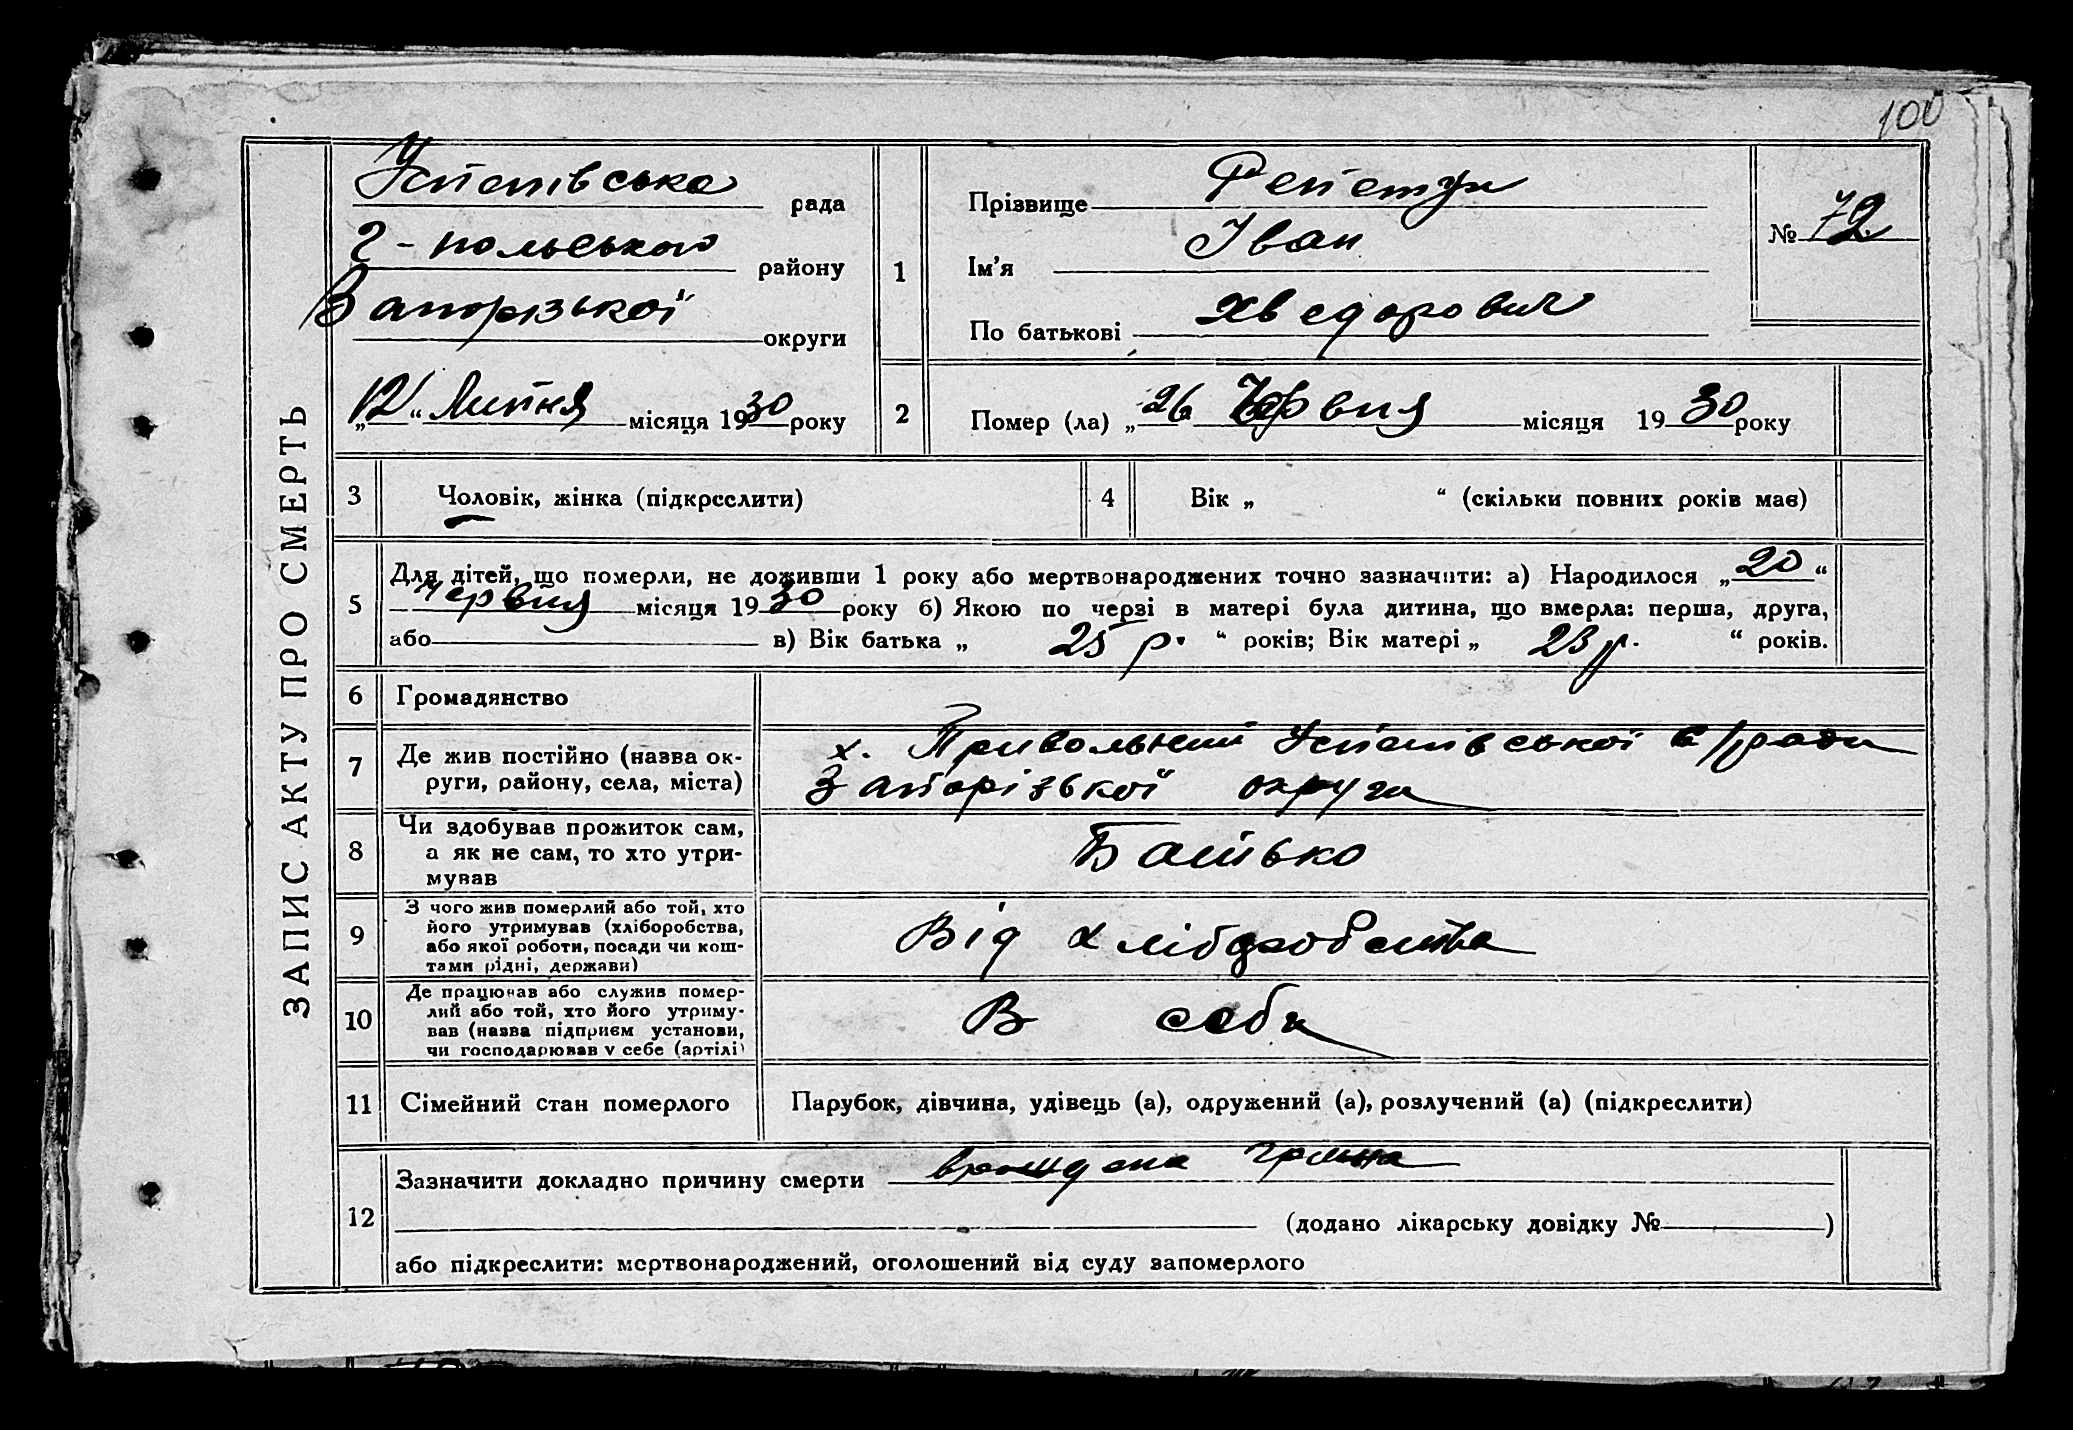 100
ЗАПИС АКТУ ПРО СМЕРТЬ
рада
Г-польського району
Запорізької округи
„12“ Липня місяця 1930 року
1
Прізвище Репетун
Ім'я Іван
По батькові Хведорович
№ 72
2
Помер (ла) „26 Червня місяця 1930 року
3
Чоловік, жінка (підкреслити)
4
Вік „ “ (скільки повних років має)
5
Для дітей, що померли, не доживши 1 року або мертвонароджених точно зазначити: а) Народилося „20“
Червня місяця 1930 року б) Якою по черзі в матері була дитина, що вмерла: перша, друга,
або в) Вік батька „ 25 р. “ років; Вік матері „ 23 р. “ років.
6
Громадянство
7
Де жив постійно (назва ок-
руги, району, села, міста)
х. Привольний с/ради
Запорізької округи
8
Чи здобував прожиток сам,
а як не сам, то хто утри-
мував
Батько
9
З чого жив померлий або той, хто
його утримував (хліборобства,
або якої роботи, посади чи кош-
тами рідні, держави)
Від хліборобства
10
Де працював або служив помер-
лий або той, хто його утриму-
вав (назва підприєм установи,
чи господарював у себе (артілі)
В себе
11
Сімейний стан померлого
Парубок, дівчина, удівець (а), одружений (а), розлучений (а) (підкреслити)
12
Зазначити докладно причину смерти
(додано лікарську довідку № )
або підкреслити: мертвонароджений, оголошений від суду запомерлого